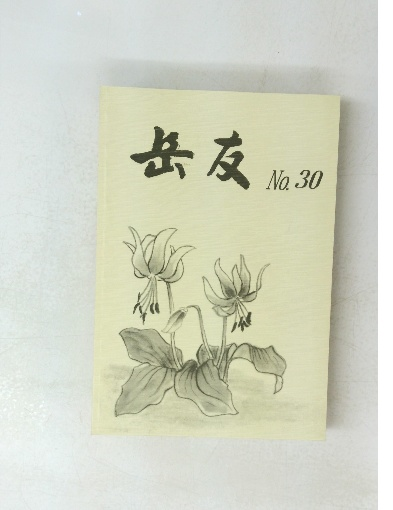 岳友 No. 30